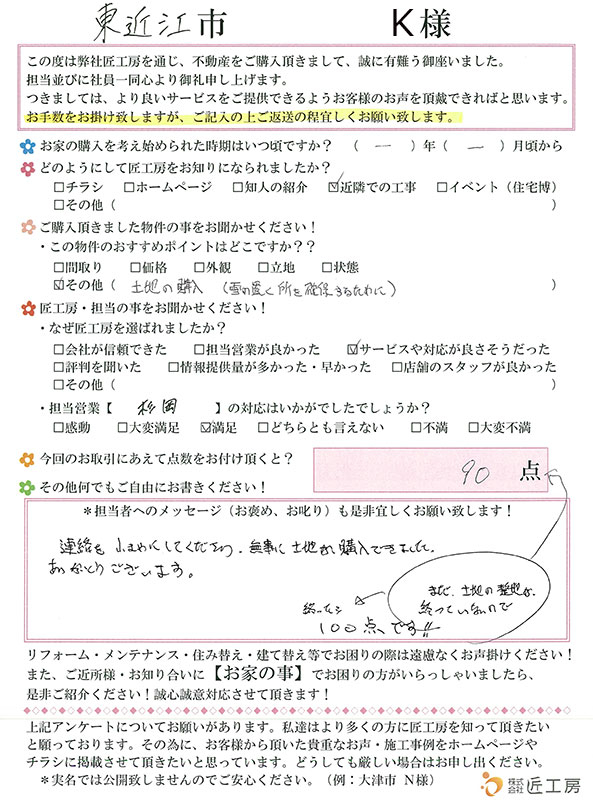 東近江市 K様
この度は弊社匠工房を通じ、不動産をご購入頂きまして、誠に有難う御座いました。
担当並びに社員一同心より御礼申し上げます。
つきましては、より良いサービスをご提供できるようお客様のお声を頂戴できればと思います。
お手数をお掛け致しますが、ご記入の上ご返送の程宜しくお願い致します。
お家の購入を考え始められた時期はいつ頃ですか? ( ー )年( ー )月頃から
どのようにして匠工房をお知りになられましたか?
□チラシ □ホームページ □知人の紹介 ☑近隣での工事 □イベント(住宅博)
□その他( )
ご購入頂きました物件の事をお聞かせください!
・この物件のおすすめポイントはどこですか??
□間取り □価格 □外観 □立地 □状態
☑その他( 土地の購入 (雪の置く所を確保するために) )
匠工房・担当の事をお聞かせください!
・なぜ匠工房を選ばれましたか?
□会社が信頼できた □担当営業が良かった ☑サービスや対応が良さそうだった
□評判を聞いた □情報提供量が多かった・早かった □店舗のスタッフが良かった
□その他( )
・担当営業【 杉岡 】の対応はいかがでしたでしょうか?
□感動 □大変満足 ☑満足 □どちらとも言えない □不満 □大変不満
今回のお取引にあえて点数をお付け頂くと? 90 点
その他何でもご自由にお書きください!
*担当者へのメッセージ(お褒め、お叱り)も是非宜しくお願い致します!
連絡を小まめにしてくださり、無事に土地が購入できました。
ありがとうございます。
まだ、土地の整地が
終っていないので
終ったら
100点です!!
リフォーム・メンテナンス・住み替え・建て替え等でお困りの際は遠慮なくお声掛けください!
また、ご近所様・お知り合いに【お家の事】でお困りの方がいらっしゃいましたら、
是非ご紹介ください!誠心誠意対応させて頂きます!
上記アンケートについてお願いがあります。私達はより多くの方に匠工房を知って頂きたい
と願っております。その為に、お客様から頂いた貴重なお声・施工事例をホームページや
チラシに掲載させて頂きたいと思っています。どうしても厳しい場合はお申し出ください。
*実名では公開致しませんのでご安心ください。(例:大津市 N様)
株式会社 匠工房